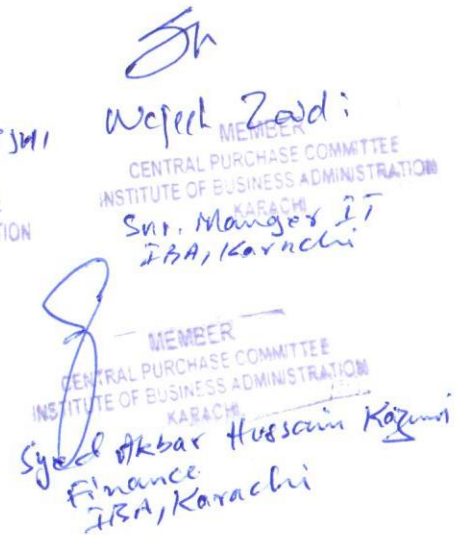 Wajeeh Zaidi
MEMBER
CENTRAL PURCHASE COMMITTEE
INSTITUTE OF BUSINESS ADMINISTRATION
KARACHI
TION
Snr. Manger IT
IBA, Karachi
MEMBER
CENTRAL PURCHASE COMMITTEE
INSTITUTE OF BUSINESS ADMINISTRATION
KARACHI
Syed Akbar Hussain Kazmi
Finance
IBA, Karachi